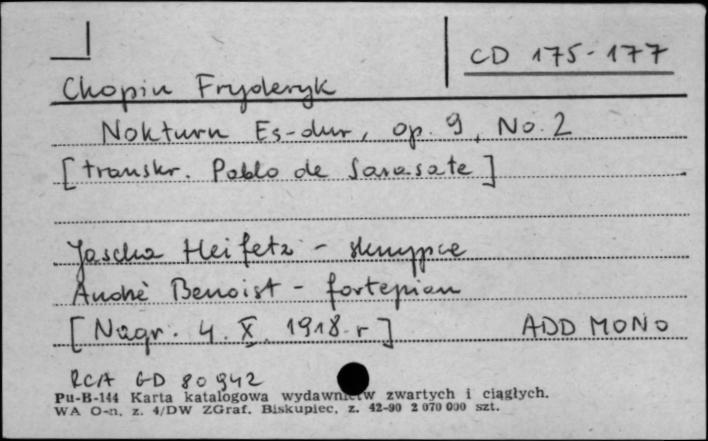 CD 175-177
Chopin Fryderyk
Nokturn Es-dur, op. 9, No. 2
[transkr. Pablo de Sarasate]
Jascha Heifetz - skrzypce
André Benoist - fortepian
[Nagr. 4. X. 1918 r]
ADD MONO
RCA GD 80942
Pu-B-144 Karta katalogowa wydawnictw zwartych i ciągłych.
WA O-n, z. 4/DW ZGraf. Biskupiec, z. 42-90 2 070 000 szt.